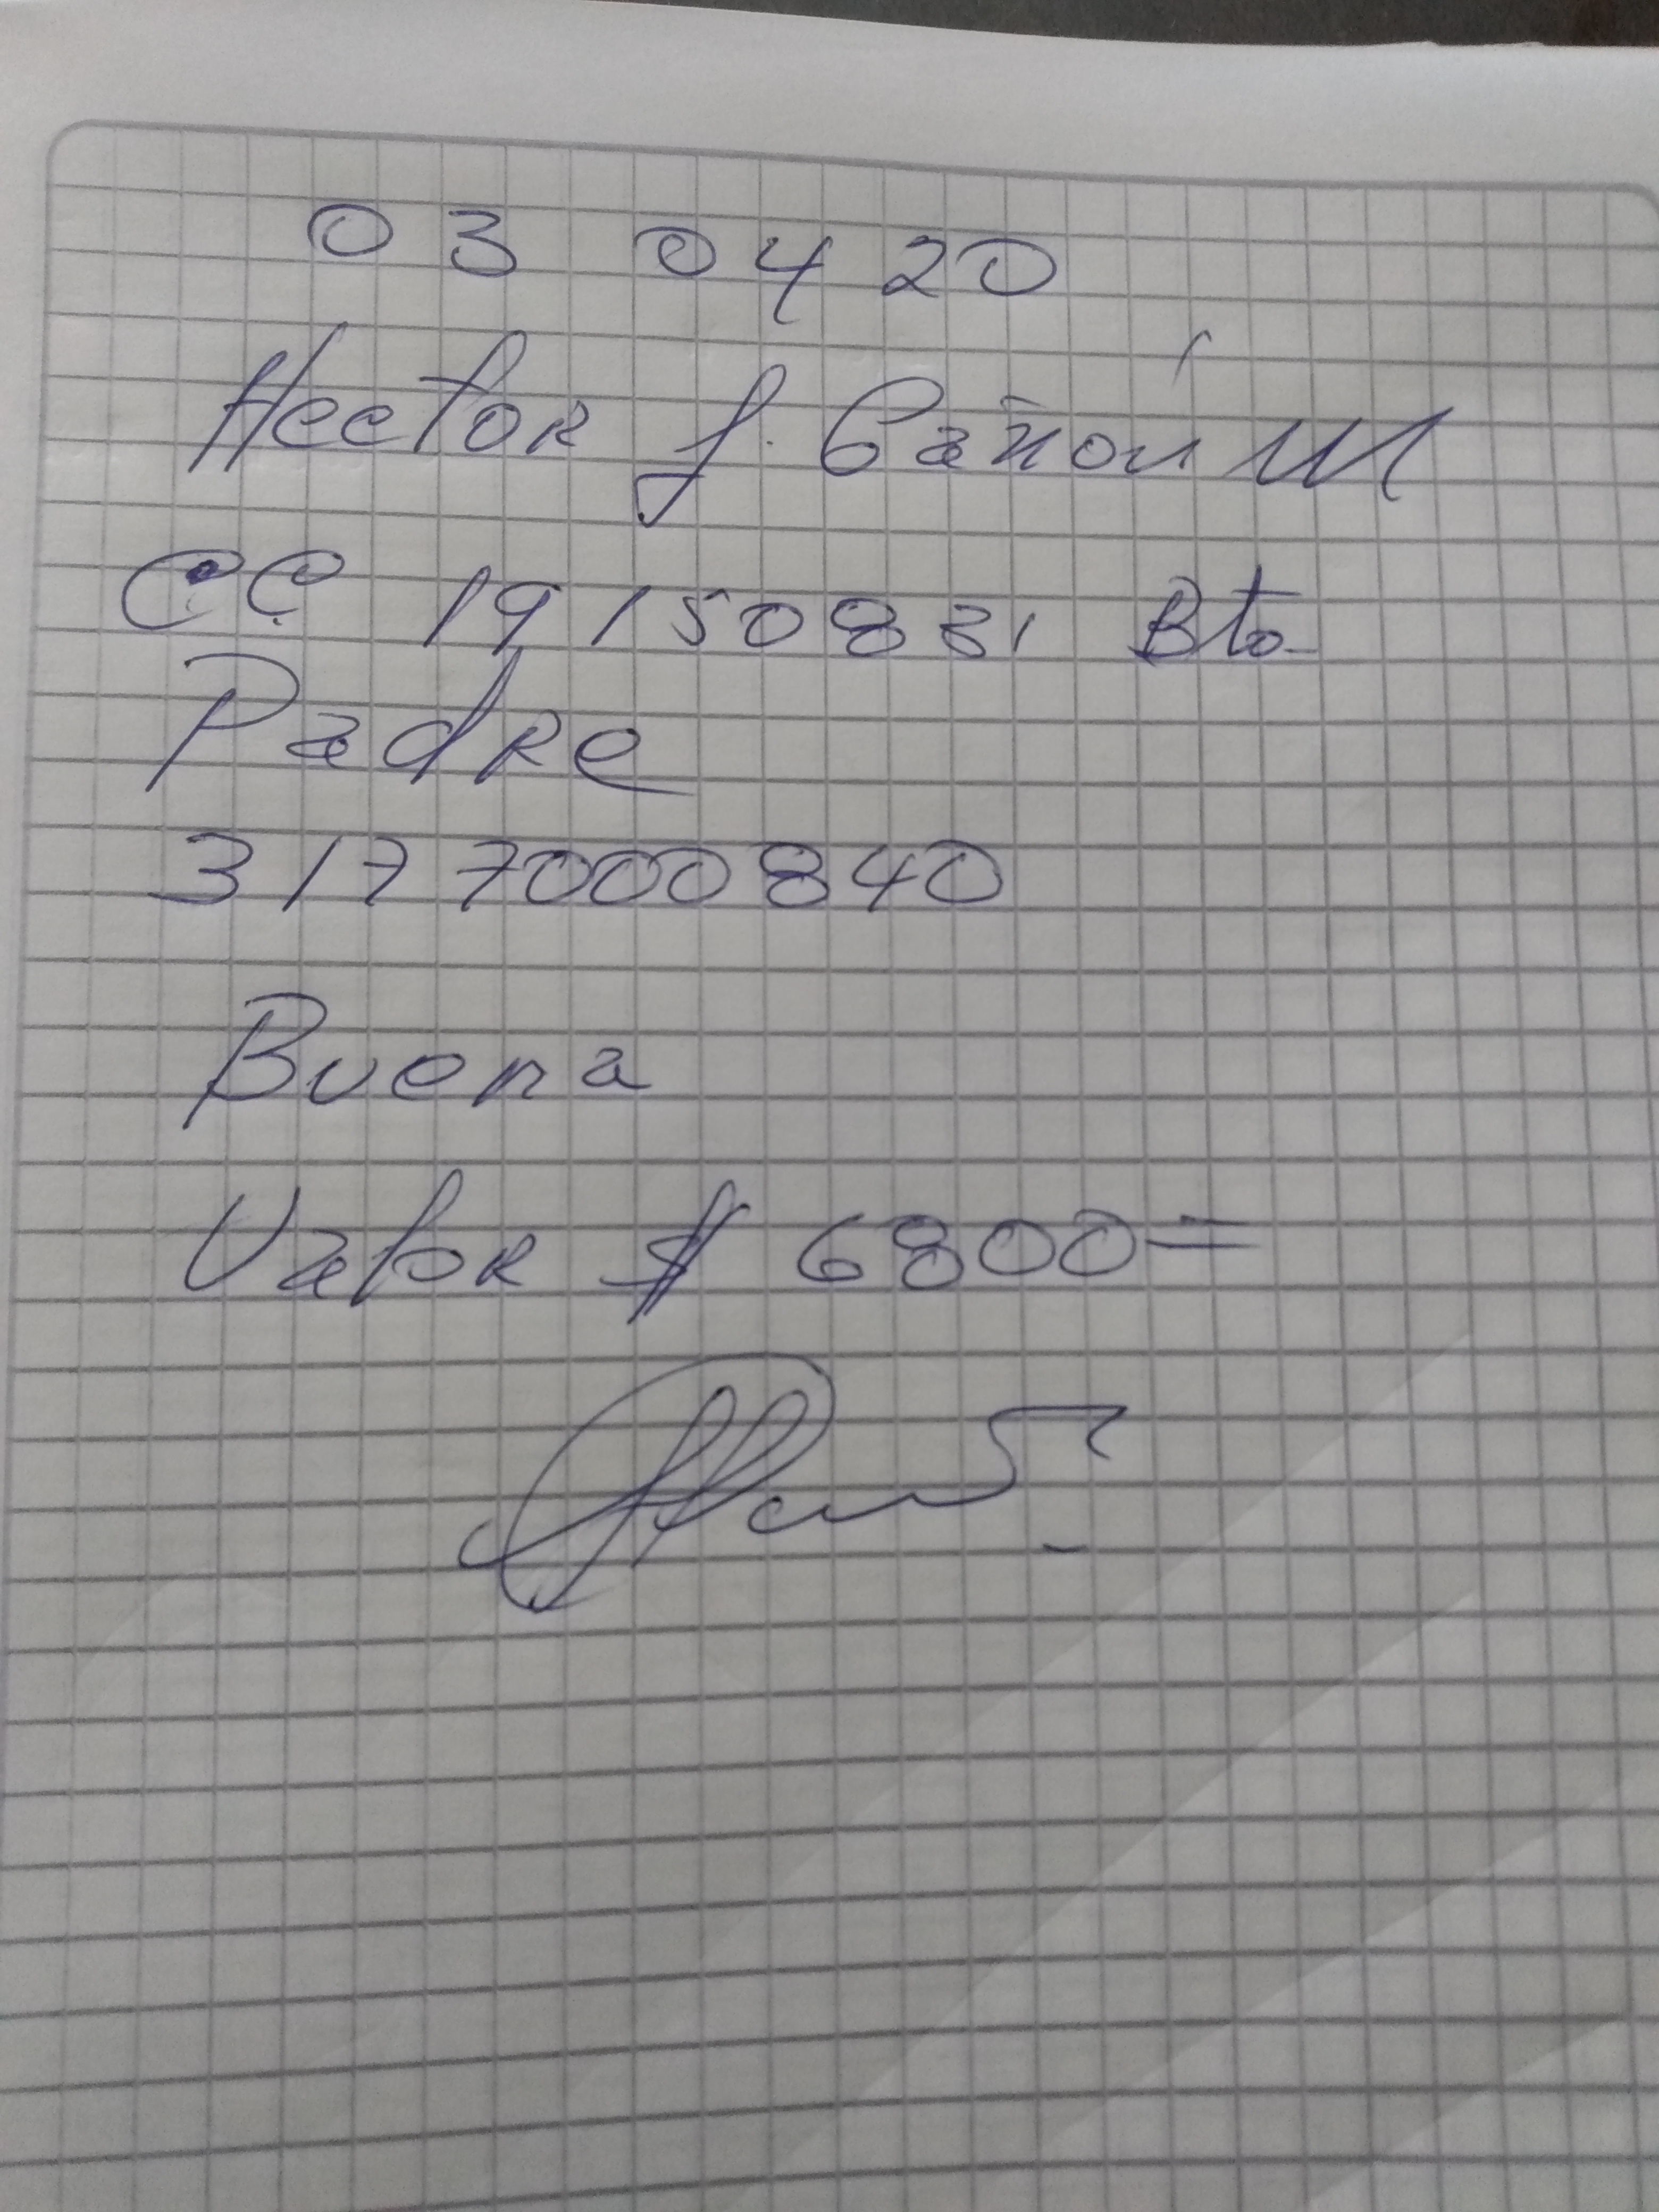 03 04 20
Hector J. Cañón M
CC 19150831 Bta
Padre
3177000840
Buena
Valor $ 6800=